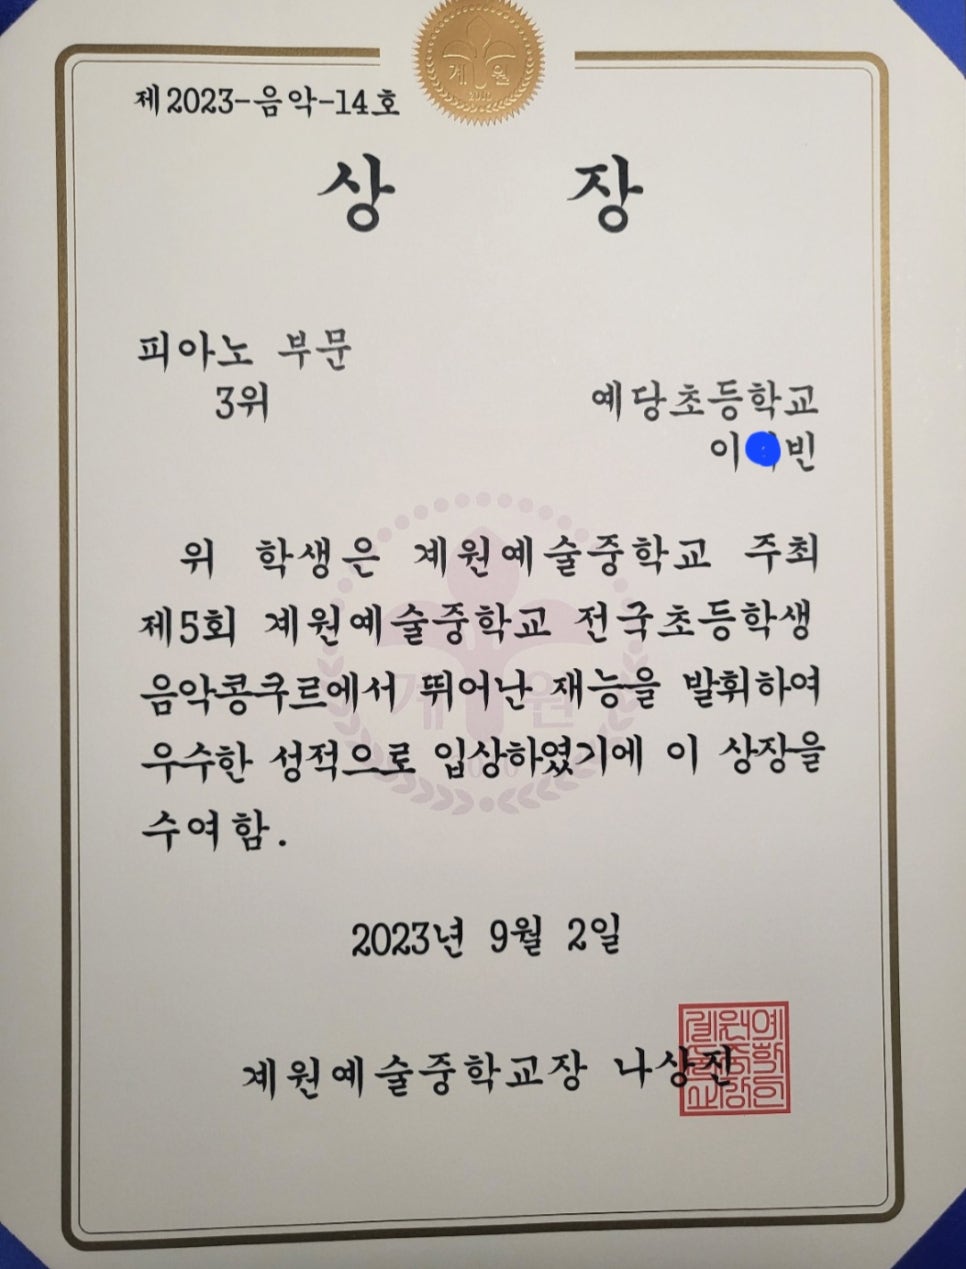 계원
제2023-음악-14호
상 장
피아노 부문
3위
예당초등학교
이 빈
위 학생은 계원예술중학교 주최
제5회 계원예술중학교 전국초등학생
음악콩쿠르에서 뛰어난 재능을 발휘하여
우수한 성적으로 입상하였기에 이 상장을
수여함.
2023년 9월 2일
계원예술중학교장 나상진